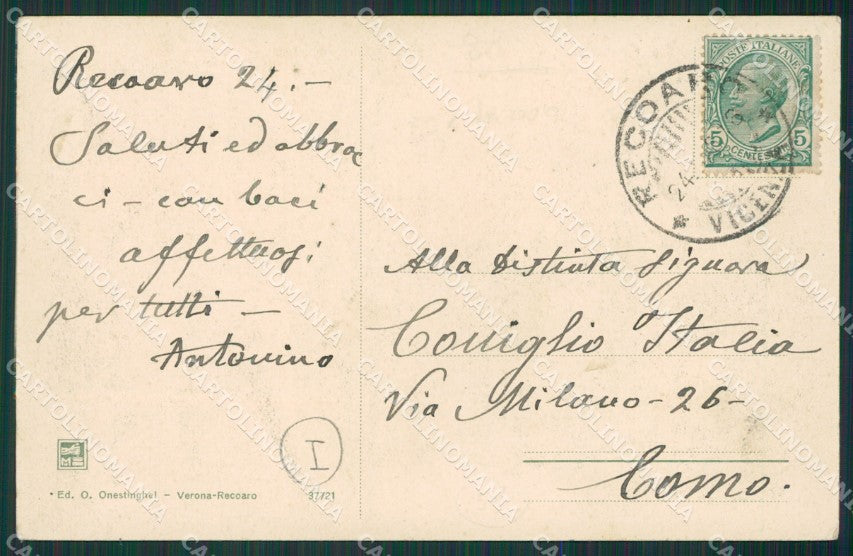 Recoaro 24.-
Saluti ed abbrac
ci - con baci
affettuosi
per tutti -
Antonino
Ed. O. Onestinghel - Verona-Recoaro
37721
I
POSTE ITALIANE
5 5
CENTESIMI
RECOARO
24
VICENZA
Alla Distinta Signora
Coniglio Italia
Via Milano - 26 -
Como.
CARTOLINOMANIA